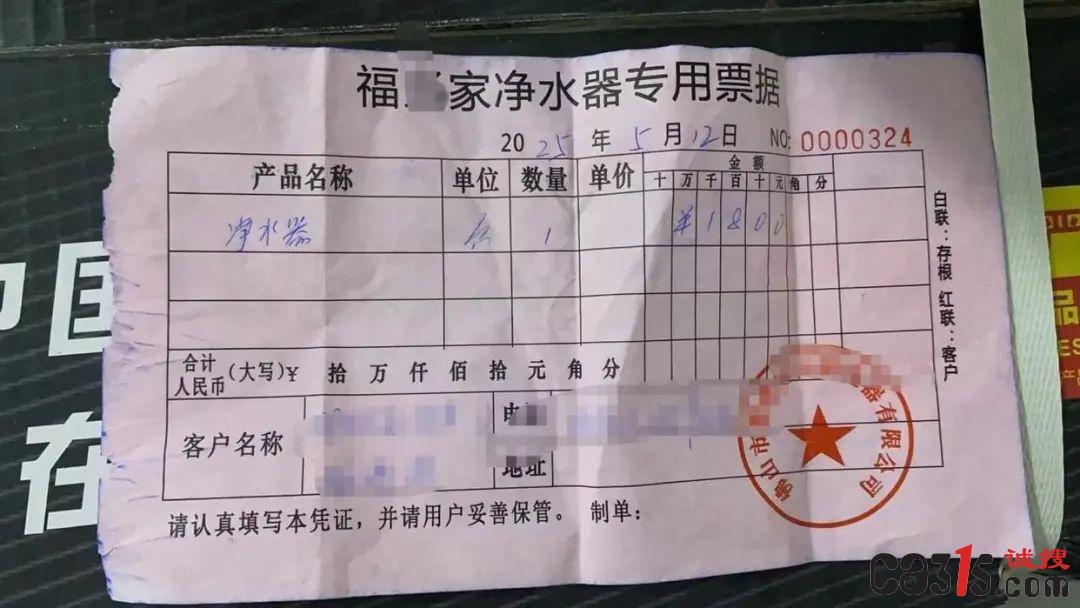 福 家净水器专用票据
2025 年 5 月 12日 NO: 0000324
产品名称 单位 数量 单价 金额
十 万 千 百 十 元 角 分
净水器 台 1 ¥1800
合计
人民币
(大写)¥ 拾 万 仟 佰 拾 元 角 分
客户名称
电
地址
请认真填写本凭证，并请用户妥善保管。 制单：
白联：存根 红联：客户
佛山市 器有限公司
中国
在
品
ca31s.com 诚搜